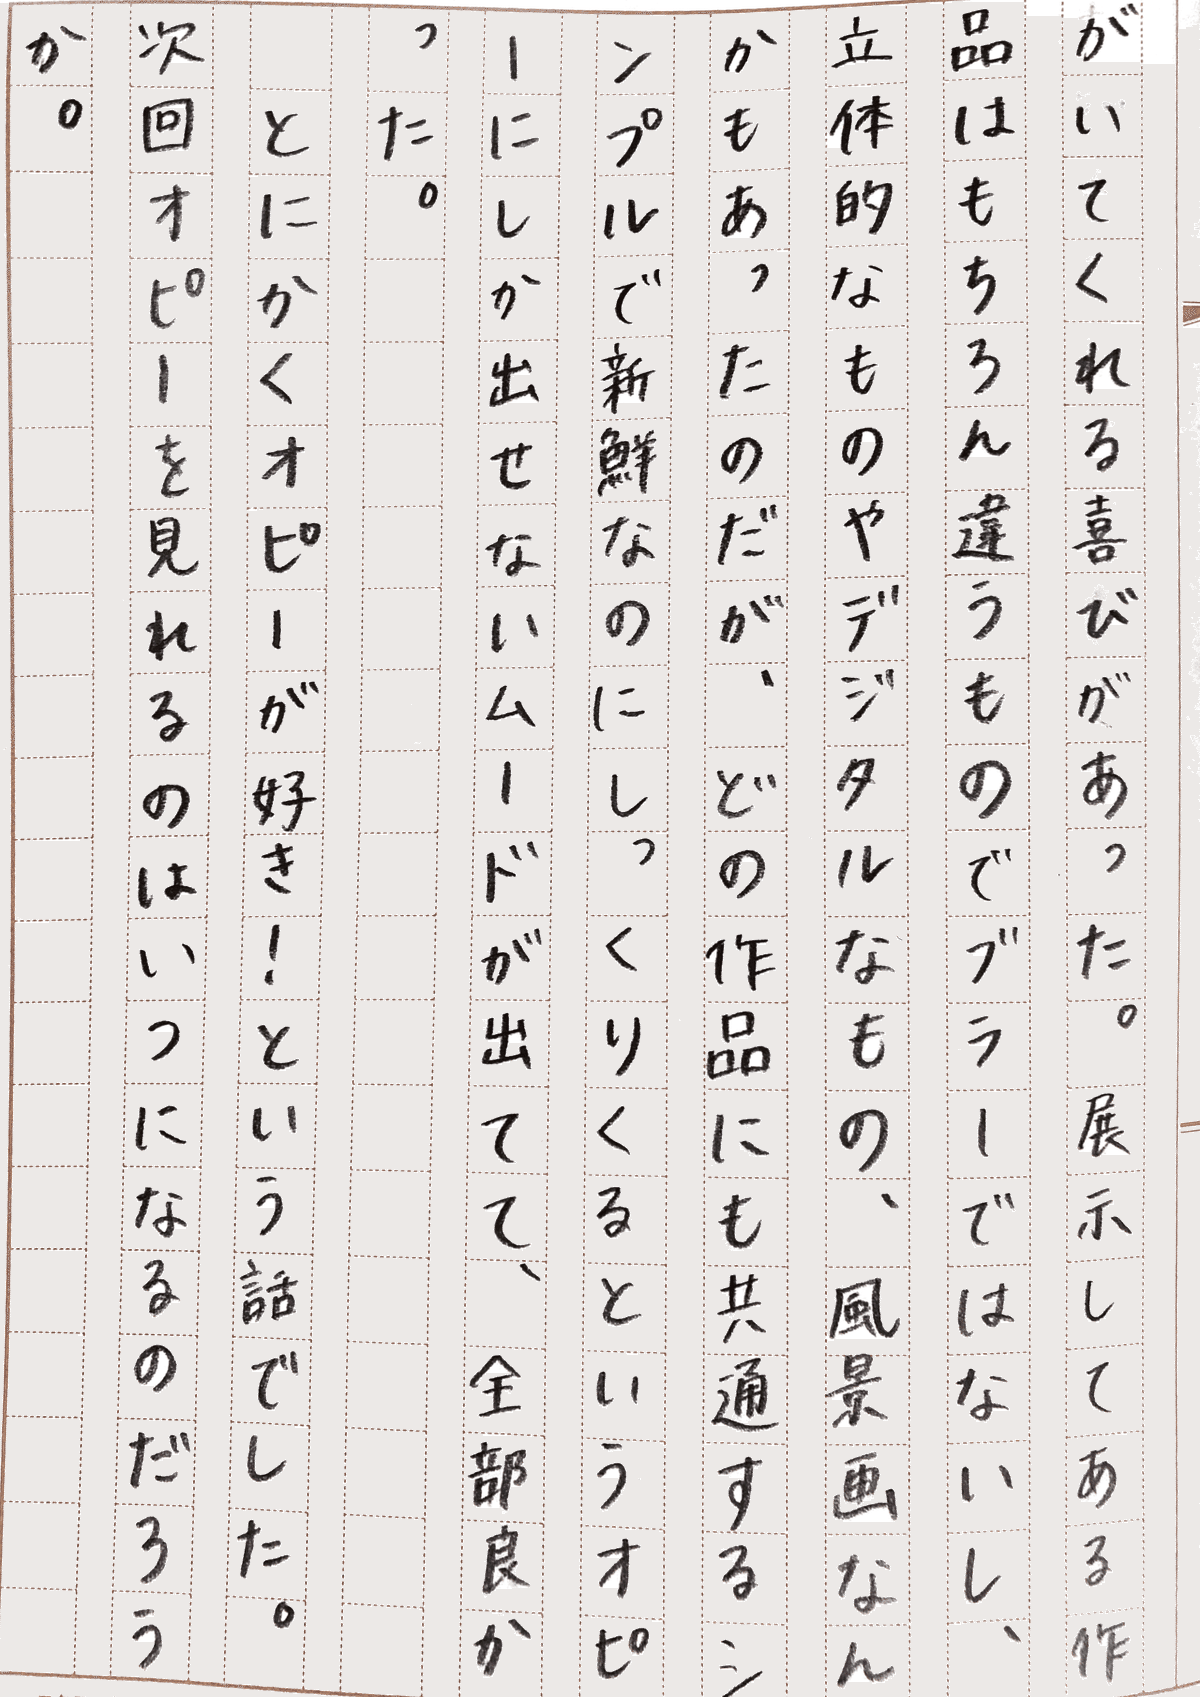 がいてくれる喜びがあった。展示してある作
品はもちろん違うものでブラーではないし、
立体的なものやデジタルなもの、風景画なん
かもあったのだが、どの作品にも共通するシ
ンプルで新鮮なのにしっくりくるというオピ
ーにしか出せないムードが出てて、全部良か
った。
とにかくオピーが好き！という話でした。
次回オピーを見れるのはいつになるのだろう
か。